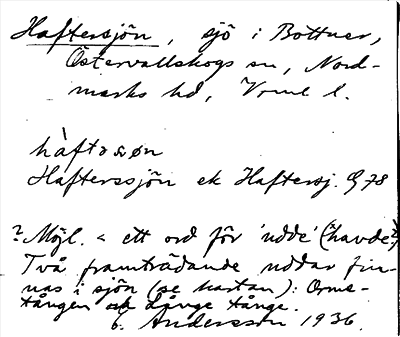 Haftersjön, sjö i Bottner,
Östervallskogs sn, Nord-
marks hd, Vrml l.
Hafterssjön ek Haftersj. G 78
? Möjl. < ett ord för 'udde' (*havde?)
Två framträdande uddar fin-
nas i sjön (se kartan): Orme-
tången och Långe tånge.
Andersson 1936.